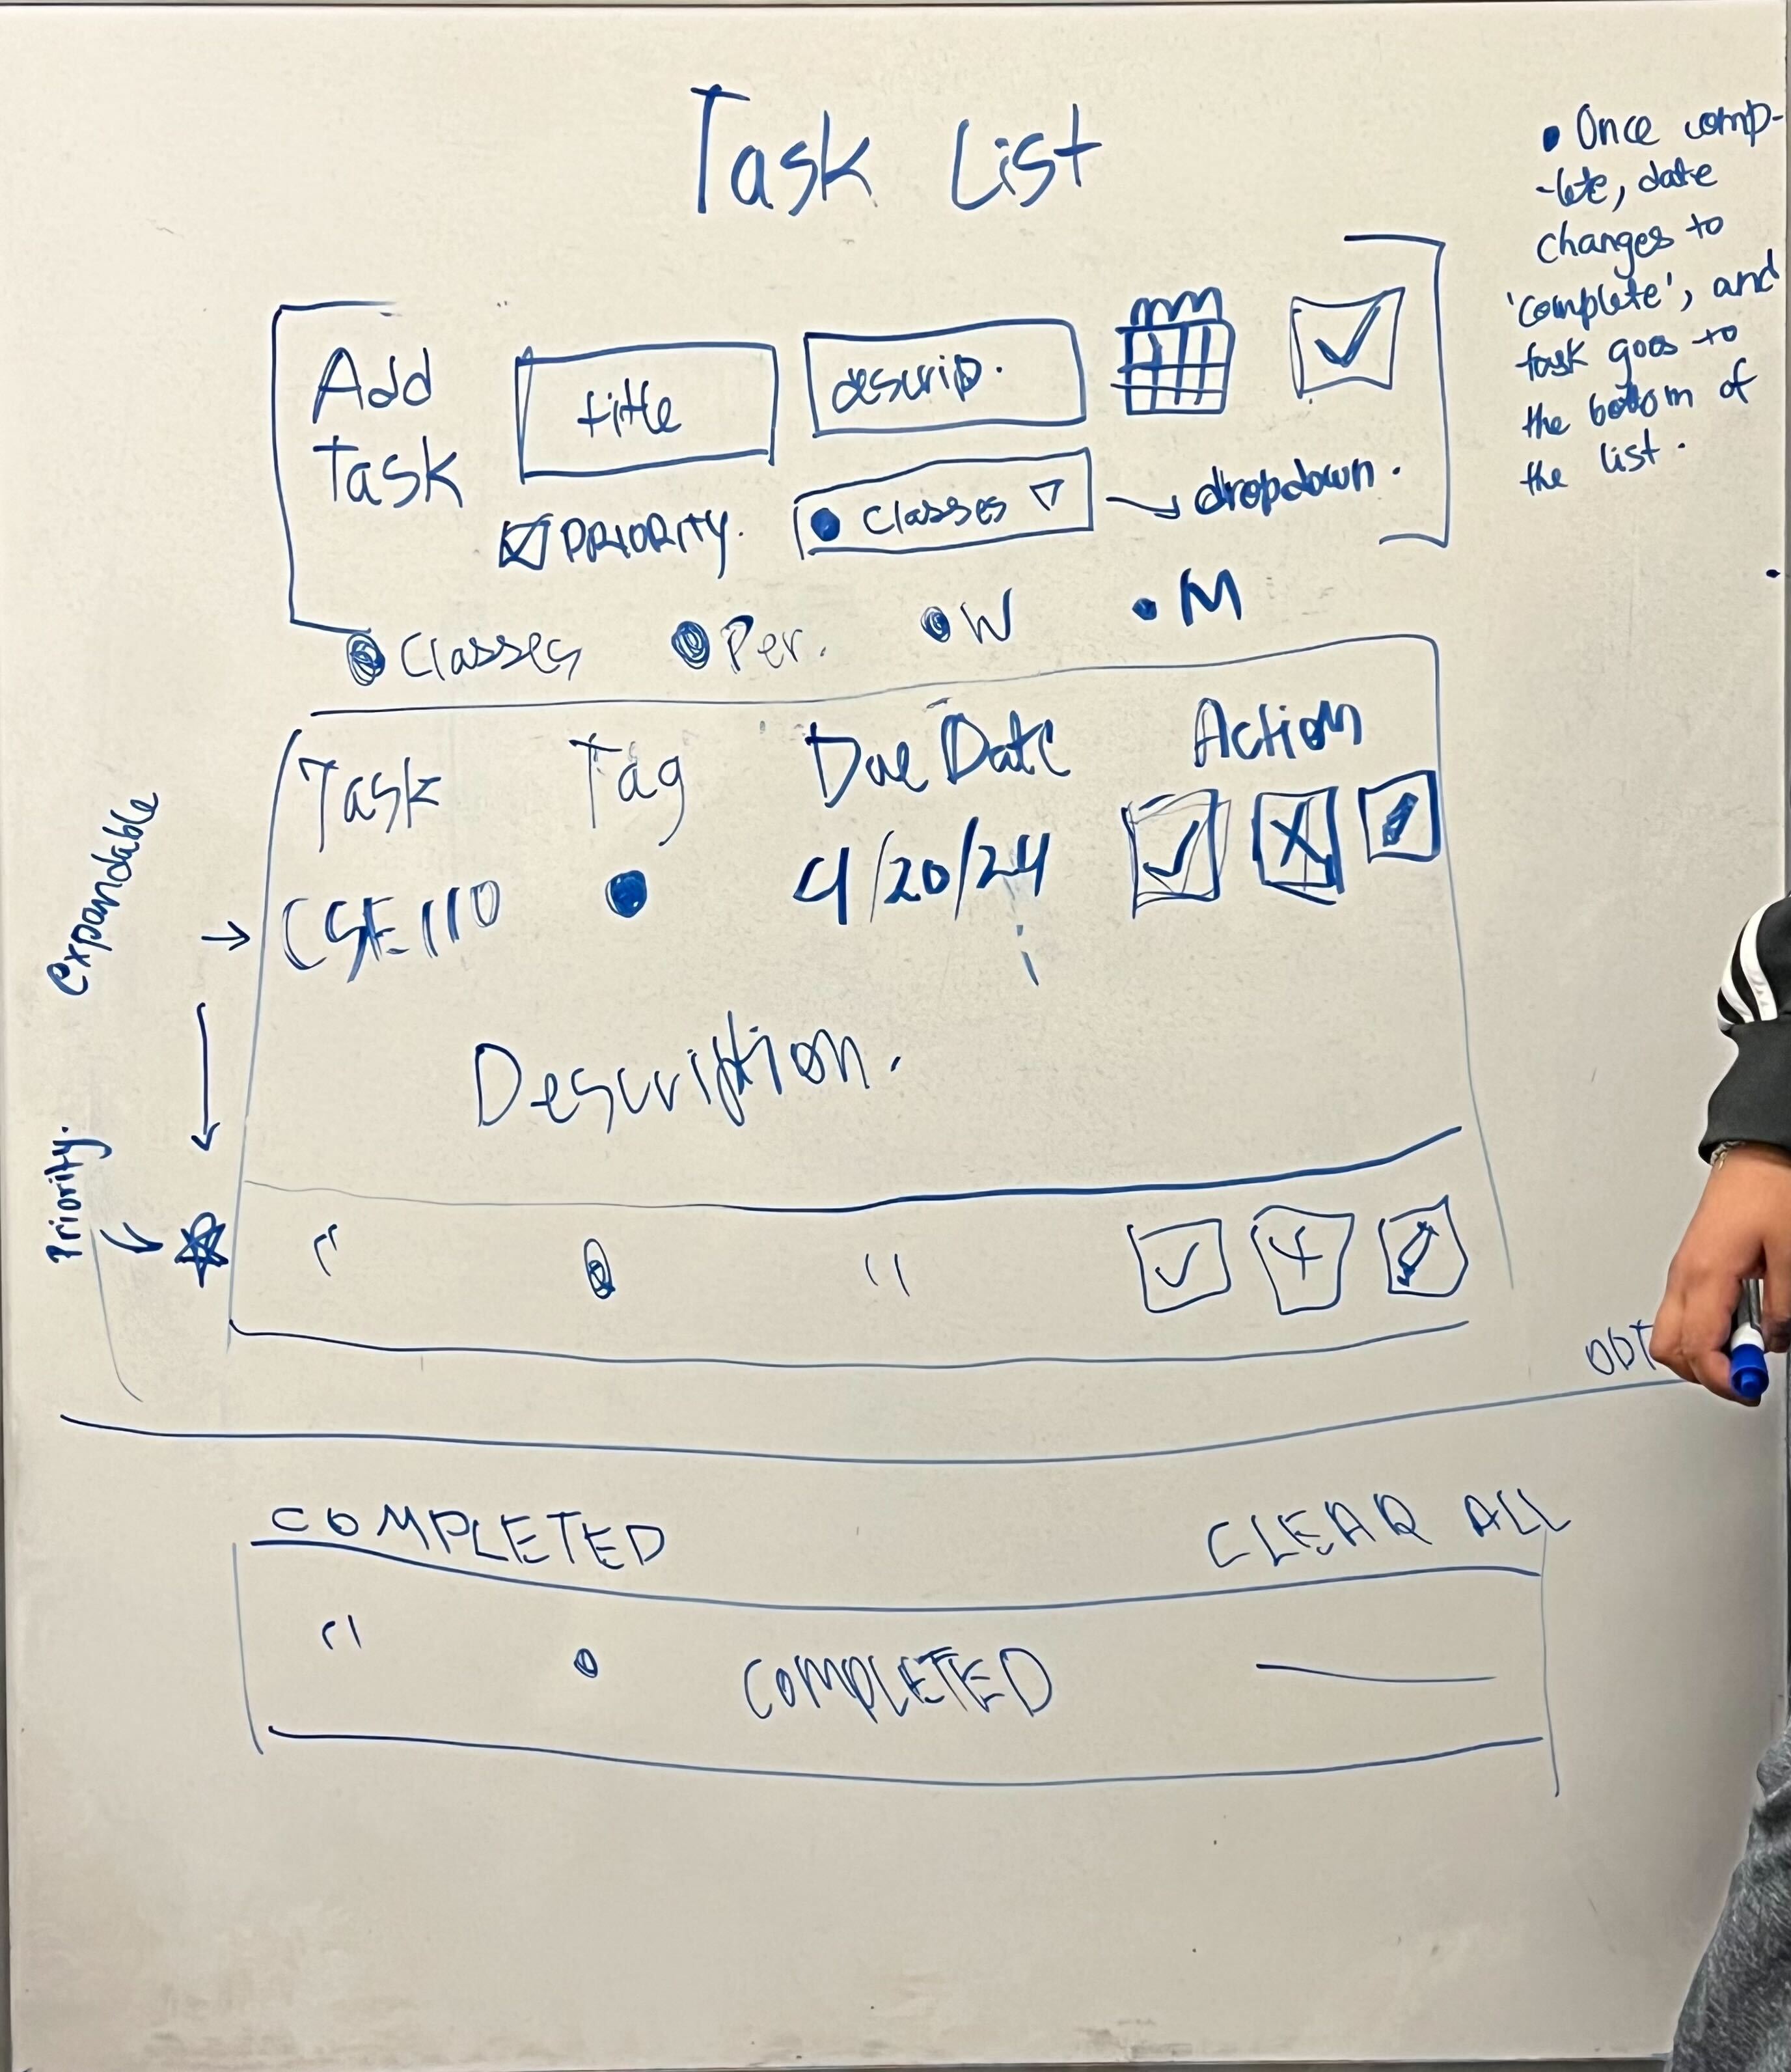 Task List
• Once comp-
-lete, date
changes to
'complete', and
task goes to
the bottom of
the list.
Add
Task
title
descrip.
PRIORITY.
Classes
dropdown.
Classes
Per.
W
M
Task Tag Due Date Action
CSE 110 4/20/24
Expandable
Description.
Priority.
" "
COMPLETED CLEAR ALL
" COMPLETED